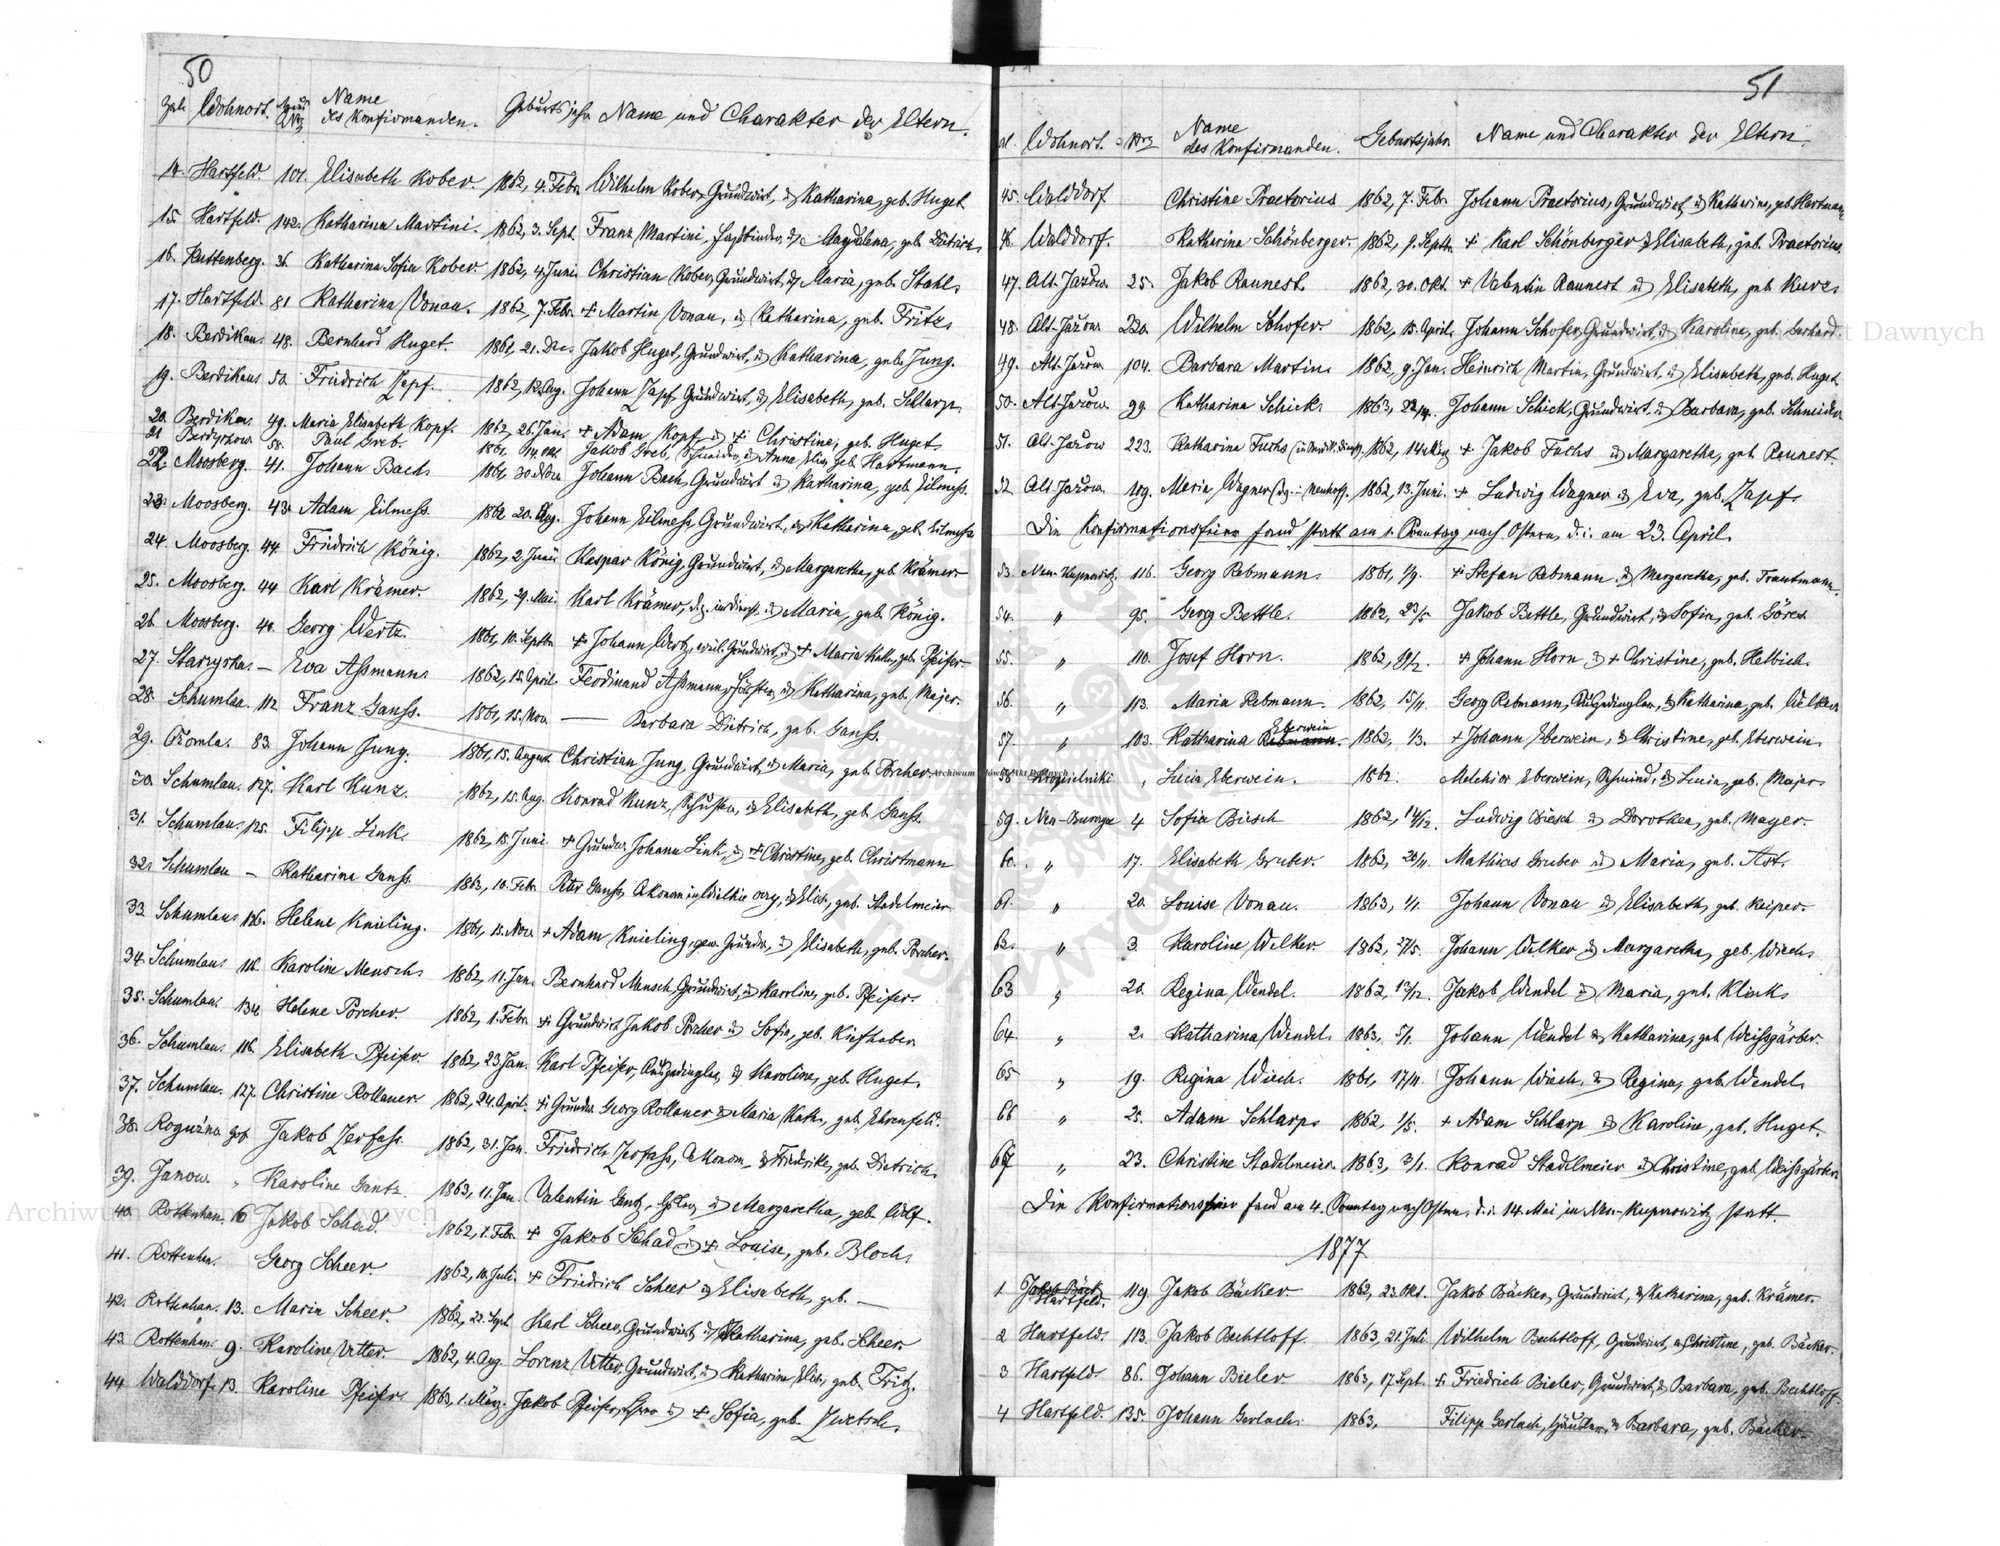 50
Zahl Wohnort. Haus Nro Name des Konfirmanden. Geburtsjahr Name und Charakter der Eltern.
14. Hartfeld. 101. Elisabeth Kober. 1862, 4. Febr. Wilhelm Kober, Grundwirt, & Katharina, geb. Huget
15. Hartfeld. 142. Katharina Martini. 1862, 3. Sept. Franz Martini, Faßbinder, & Magdalena, geb. Dietrich,
16. Kuttenberg. 36. Katharina Sofia Kober 1862, 4. Juni Christian Kober, Grundwirt, & Maria, geb. Stahl,
17. Hartfeld. 81 Katharina Vonau. 1862, 7. Febr. + Martin Vonau, & Katharina, geb. Fritz,
18. Berdikau. 48. Bernhard Huget. 1861, 21. Dec. Jakob Huget, Grundwirt, & Katharina, geb. Jung.
19. Berdikau 50. Friedrich Zapf. 1862, 12. Aug. Johann Zapf, Grundwirt, & Elisabeth, geb. Schlarp,
20. Berdikau. 49. Maria Elisabeth Kopf. 1862, 26. Jan. + Adam Kopf & + Christine, geb. Huget
21 Berdychow. 58. Paul Greb. 1861, Jakob Greb, Schneider, & Anna Elis. geb. Hartmann,
22. Moosberg. 41. Johann Bach, 1861, 30 Johann Bach, Grundwirt & Katharina, geb. Eilmess.
23. Moosberg. 43. Adam Eilmess. 1862 20. Aug. Johann Eilmess, Grundwirt, & Katharina, geb. Eilmess
24. Moosberg. 44. Friedrich König. 1862, 2. Juni Kaspar König, Grundwirt, & Margaretha, geb. Krämer
25. Moosberg. 44 Karl Krämer 1862, 29. Mai. Karl Krämer, & Maria, geb. König.
26 Moosberg. 40. Georg Wertz. 1861, 10. Septbr. + Johann Wertz, weil. Grundwirt, & + Maria Kath., geb. Pfeifer
27. Starzyska. — Eva Aßmann. 1862, 15. April. Ferdinand Aßmann, Förster, & Katharina, geb. Majer.
28. Schumlau. 112 Franz Ganss. 1861, 15. Nov. — Barbara Dietrich, geb. Ganss.
29. 83. Johann Jung. 1861, 15. August Christian Jung, Grundwirt, & Maria, geb. Porcher.
30. Schumlau. 127. Karl Kunz. 1862, 15. Aug. Konrad Kunz, Schuster, & Elisabeth, geb. Ganss.
31. Schumlau. 125. Filipp Link. 1862, 15. Juni. + Grundw. Johann Link, & + Christine, geb. Christmann
32. Schumlau — Katharina Ganss. 1863, 10. Febr. Peter Ganss, Ökonom in Wielkie & Elis., geb. Stadelmeier
33. Schumlau. 126. Helene Knieling. 1861, 15. Nov. + Adam Knieling, gew. Grundw., & Elisabeth, geb. Porcher.
34. Schumlau. 116 Karoline Mensch, 1862, 11. Jan. Bernhard Mensch, Grundwirt, & Karoline, geb. Pfeifer.
35. Schumlau. 134 Helene Porcher. 1862, 1. Febr. + Grundwirt Jakob Porcher & Sofia, geb. Kiefhaber
36. Schumlau. 116. Elisabeth Pfeifer. 1862, 23 Jan. Karl Pfeifer, Ausgedingler, & Karolina, geb. Huget.
37. Schumlau. 127. Christine Rollauer 1862, 24. April. + Grundw. Georg Rollauer & Maria Kath., geb. Ehrenfeld.
38. Roguźna Jakob Zerfass. 1862, 31. Jan. Friedrich Zerfass, Ökonom, & Friederike, geb. Dietrich.
39. Janow. „ Karoline Gantz. 1863, 11. Jan. Valentin Gantz, & Margaretha, geb. Wolf.
40. Rottenhan. 16 Jakob Schad. 1862, 1. Febr. + Jakob Schad & + Louise, geb. Bloch,
41. Rottenhan. Georg Scheer. 1862, 10. Juli. + Friedrich Scheer & Elisabeth, geb. —
42. Rottenhan. 13. Maria Scheer. 1862, 22. Sept. Karl Scheer, Grundwirt, & Katharina, geb. Scheer.
43. Rottenhan. 9. Karoline Utter. 1862, 4. Aug. Lorenz Utter, Grundwirt, & Katharina Elis., geb. Fritz.
44 Walddorf. 13. Karoline Pfeifer. 1863, 1. März. Jakob Pfeifer, & + Sofia, geb. Zwetsch,
51
Wohnort. Nro Name des Konfirmanden. Geburtsjahr Name und Charakter der Eltern.
45. Walddorf. Christine Praetorius 1862, 7. Febr. Johann Praetorius, Grundwirt, & Katharina, geb. Hartmann
46. Walddorf. Katharina Schönberger. 1862, 9. Septbr. + Karl Schönberger & Elisabeth, geb. Praetorius.
47. Alt-Jazow. 25. Jakob Raunest. 1862, 30. Okt. + Valentin Raunest & Elisabeth, geb. Kurz.
48. Alt-Jazow 220. Wilhelm Schofer. 1862, 15. April. Johann Schofer, Grundwirt, & Karoline, geb. Gerhard.
49. Alt-Jazow. 104. Barbara Martin. 1862, 9. Jan. Heinrich Martin, Grundwirt, & Elisabeth, geb. Huget.
50. Alt-Jazow. 99. Katharina Schick. 1863, 22/4. Johann Schick, Grundwirt, & Barbara, geb. Schneider
51. Alt-Jazow 223. Katharina Fuchs 1862, 14. März + Jakob Fuchs & Margaretha, geb. Raunest.
52. Alt-Jazow. 109. Maria Wagner 1862, 13. Juni. + Ludwig Wagner & Eva, geb. Zapf.
Die Konfirmationsfeier fand statt am 1. Sonntag nach Ostern, d. i. am 23. April.
53. Neu-Kupnowitz. 116. Georg Rebmann. 1861, 1/9. + Stefan Rebmann & Margaretha, geb. Trautmann.
54. „ 95. Georg Bettle. 1862, 23/5 Jakob Bettle, Grundwirt, & Sofia, geb. Göres
55. „ 110. Josef Horn. 1862, + Johann Horn & + Christine, geb. Helbich.
56. „ 113. Maria Rebmann. 1862, 15/11. Georg Rebmann, Ausgedingler, & Katharina, geb. Welker
57. „ 103. Katharina Eberwein 1862, 1/3. + Johann Eberwein, & Christine, geb. Eberwein.
58. Kropielniki „ Lucia Eberwein. 1862. Melchior Eberwein, Schmied, & Lucia, geb. Majer
59. Neu-Burczyce 4 Sofia Biesch 1862, 14/12. Ludwig Biesch & Dorothea, geb. Mayer.
60. „ 17. Elisabeth Gruber. 1862, 26/11. Mathias Gruber & Maria, geb. Ast.
61. „ 20. Louise Vonau. 1863, 1/1. Johann Vonau & Elisabeth, geb. Keiper.
62. „ 3. Karoline Welker 1862, 27/5. Johann Welker & Margaretha, geb. Wiech,
63 „ 20. Regina Wendel. 1862, 13/12. Jakob Wendel & Maria, geb. Klink,
64. „ 2. Katharina Wendel. 1863, 5/1. Johann Wendel & Katharina, geb. Weissgärber.
65 „ 19. Regina Wiech. 1861, 17/11. Johann Wiech, & Regina, geb. Wendel.
66 „ 25. Adam Schlarp. 1862, 1/5. + Adam Schlarp & Karoline, geb. Huget.
67 „ 23. Christine Stadelmeier. 1863, 3/1. Konrad Stadelmeier & Christine, geb. Weissgärber
Die Konfirmationsfeier fand am 4. Sonntag nach Ostern, d. i. 14. Mai in Neu-Kupnowitz statt.
1877
1 Hartfeld. 119 Jakob Bäcker 1862, 23. Okt. Jakob Bäcker, Grundwirt, & Katharina, geb. Krämer.
2 Hartfeld. 113. Jakob Bechtloff. 1863, 21. Juli Wilhelm Bechtloff, Grundwirt, & Christine, geb. Bäcker.
3 Hartfeld. 86. Johann Bieler 1863, 17. Sept. + Friedrich Bieler, Grundwirt, & Barbara, geb. Bechtloff.
4 Hartfeld. 135. Johann Gerlach. 1863, Filipp Gerlach, Häusler, & Barbara, geb. Bäcker.